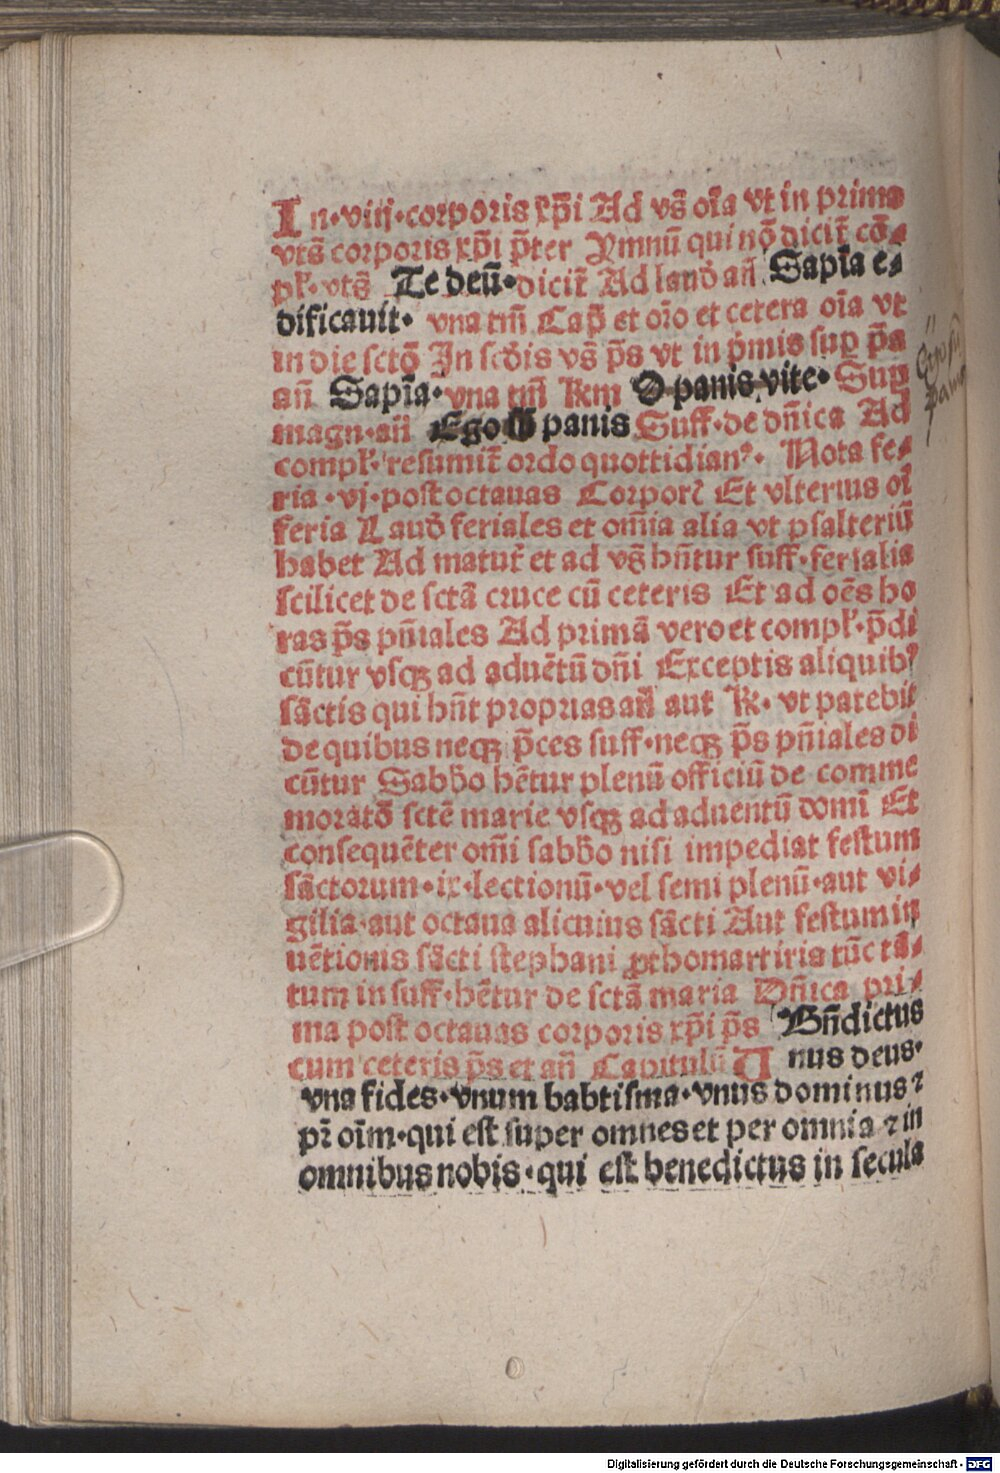 In·viij·corporis xp̄i Ad vs̄ oı̄a vt in primis
vts̄ corporis xp̄i p̄ter Ymnū qui nō dicit̄ cō⸗
pl̄·vts̄ Te deū·dicit̄ Ad laud̄ an̄ Sapı̄a e⸗
dificauit· vna tm̄ Cap̄ et or̄o et cetera oı̄a vt
in die sctō In scd̄is vs̄ p̄s vt in p̄mis sup p̄s
an̄ Sapı̄a·vna tm̄ Rm O panis vite·Sup
magn·an̄ Ego sū panis Suff·de dn̄ica Ad
compl̄·resumit̄ ordo quottidianꝰ· Nota fe⸗
ria·vj·post octauas Corporꝭ Et vlterius oı̄
feria Laud̄ feriales et om̄ia alia vt psalteriū
habet Ad matut̄ et ad vs̄ hn̄tur suff·ferialia
scilicet de sctā cruce cū ceteris Et ad oēs ho
ras p̄s pn̄iales Ad primā vero et compl̄·p̄di
cūtur vsqꝫ ad aduētū dn̄i Exceptis aliquibꝰ
sāctis qui hn̄t proprias an̄ aut R̄·vt patebit
de quibus neqꝫ p̄ces suff·neqꝫ p̄s pn̄iales di
cūtur Sabb̄o hētur plenū officiū de comme
moratō sctē marie vsqꝫ ad aduentū domı̄ Et
consequēter om̄i sabb̄o nisi impediat festum
sāctorum·ix·lectionū·vel semi plenū·aut vi⸗
gilia·aut octaua alicuius sācti Aut festum in
uētionis sācti stephani ꝓthomartiris tūc tā⸗
tum in suff·hētur de sctā maria Dn̄ica pri⸗
ma post octauas corporis xp̄i p̄s Bn̄dictus
cum ceteris p̄s et an̄ Capitulū Unus deus·
vna fides·vnum babtisma·vnus dominus ⁊
pr̄ oı̄m·qui est super omnes et per omnia ⁊ in
omnibus nobis·qui est benedictus in secula
Digitalisierung gefördert durch die Deutsche Forschungsgemeinschaft - DFG